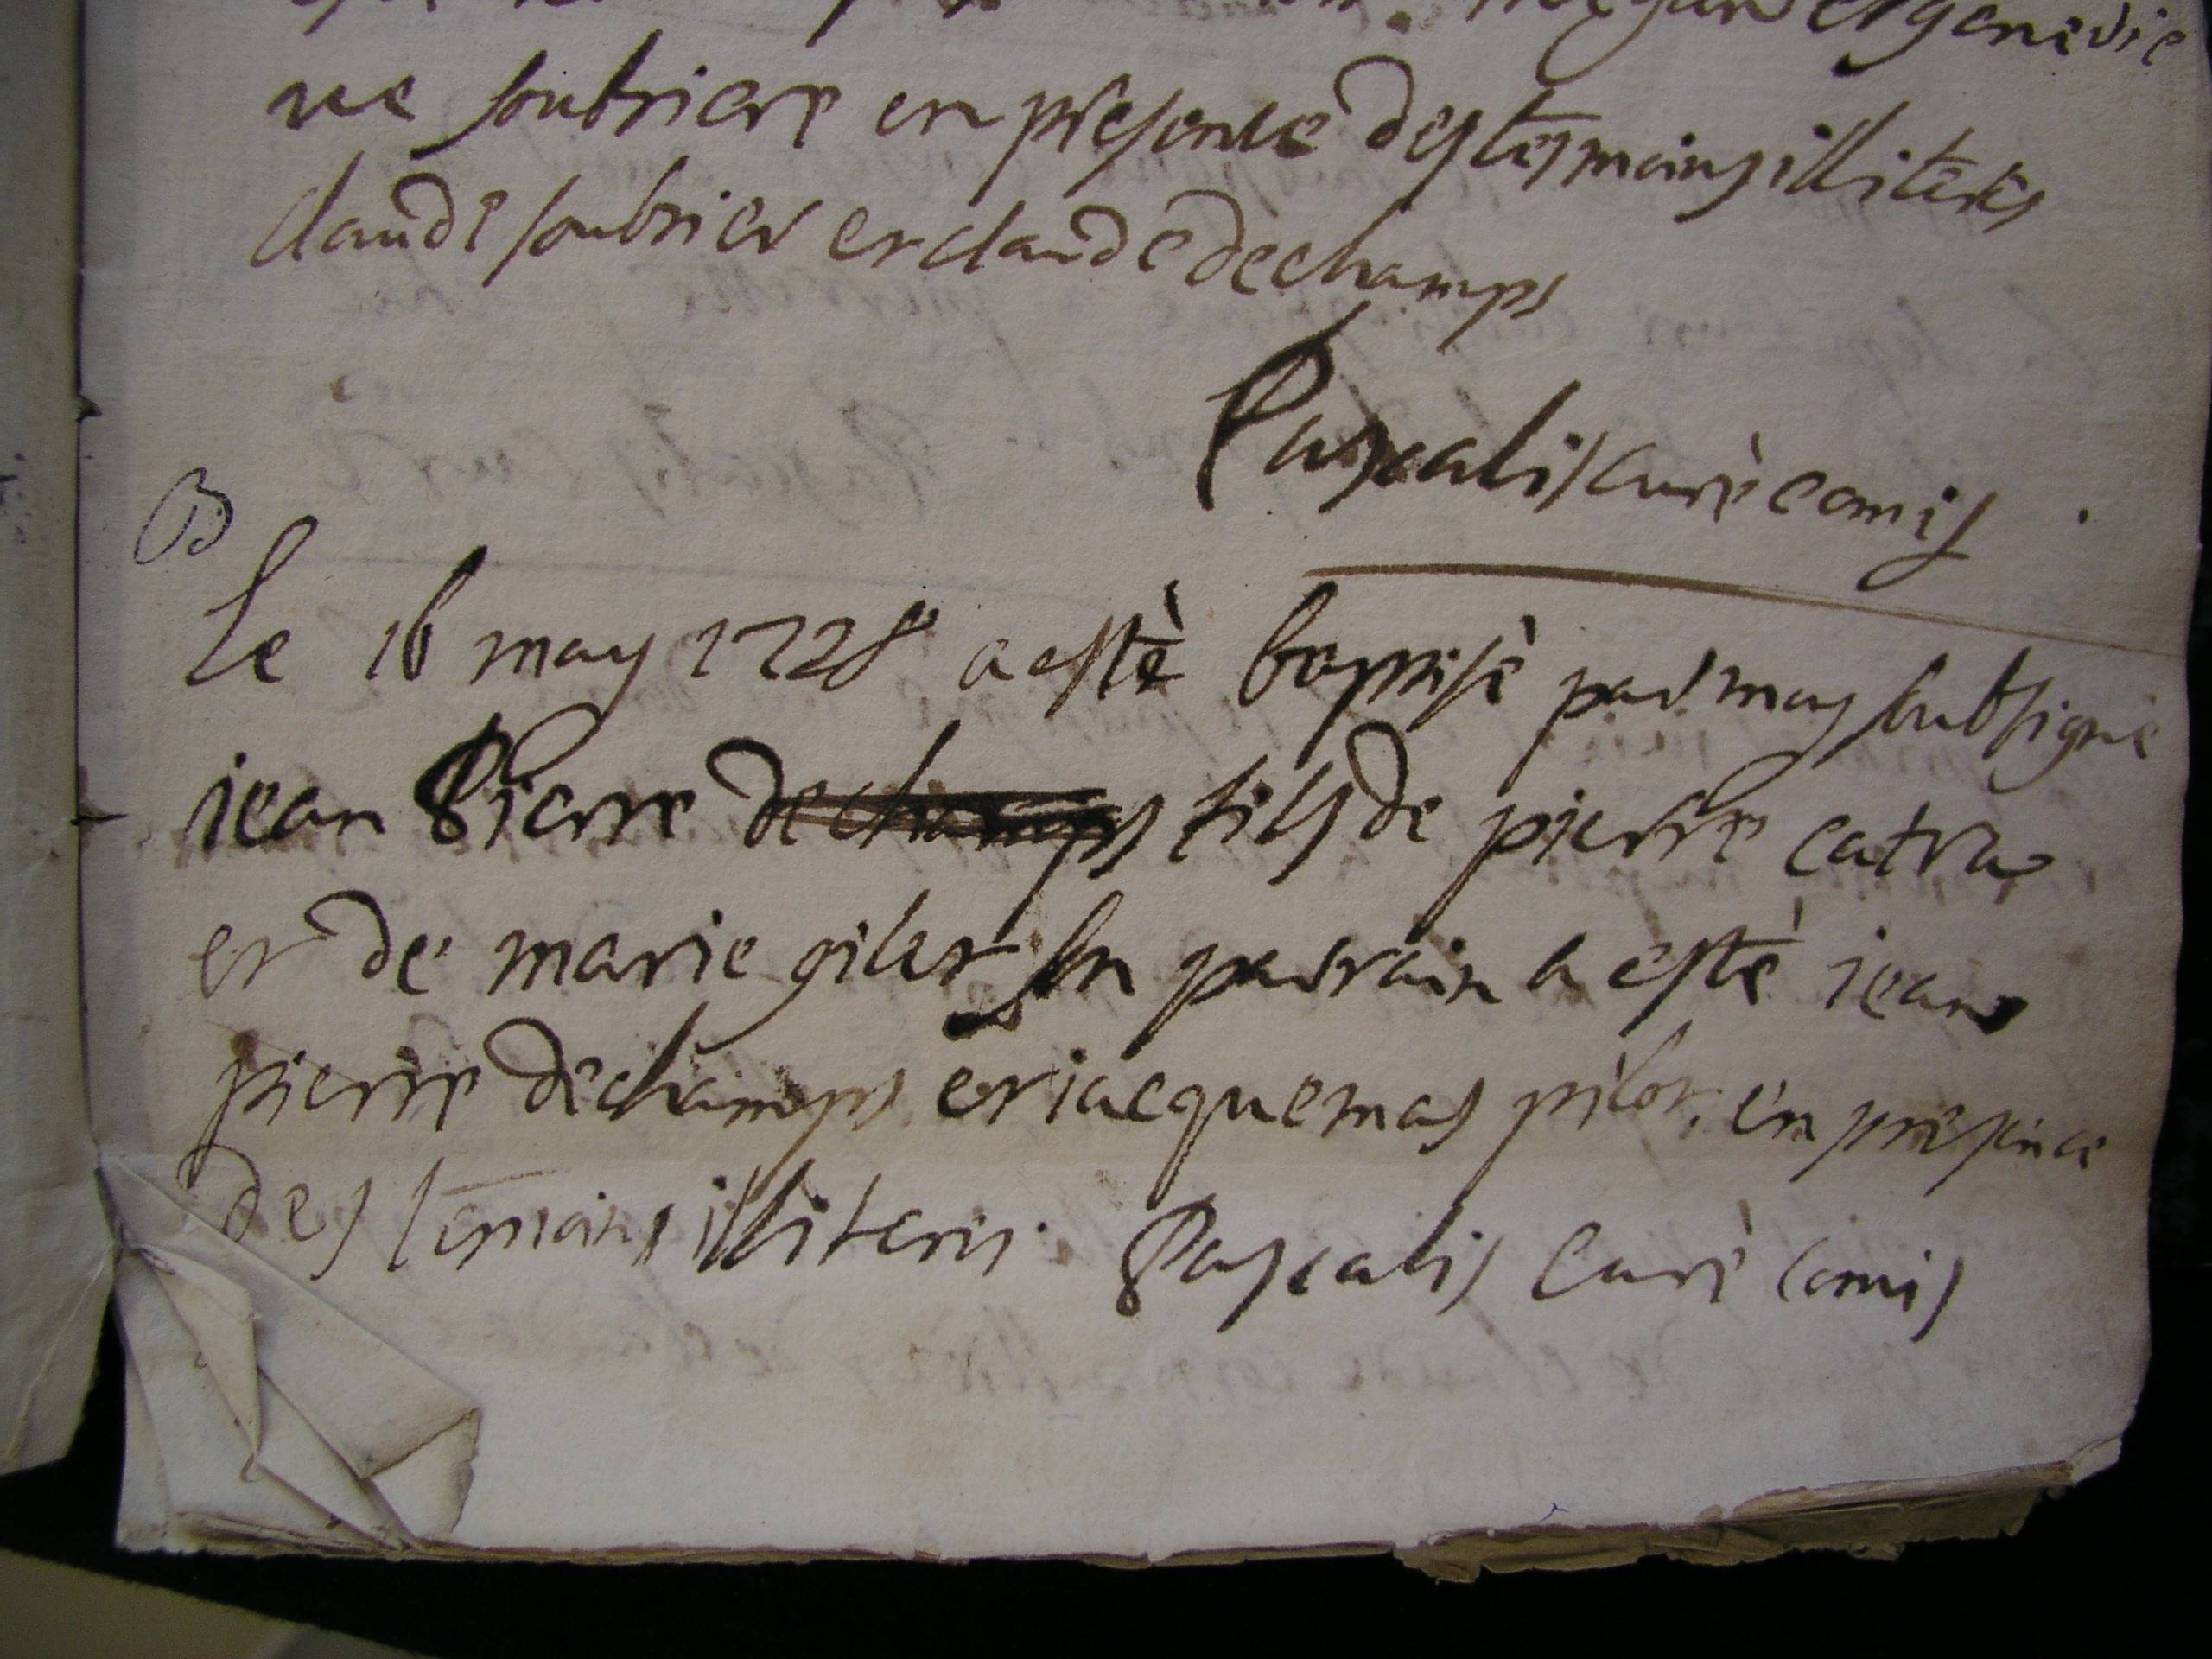 et genevie
ve soubriere en presence des tesmoins illiterés
claude soubrier et claude dechamps
Pascalis curè comis
B
Le 16 may 1728 a estè baptisè par moy soubsigné
jean Pierre dechamps fils de pierre catra
et de marie gilet son parrain a estè jean
pierre dechamps et jacquemas pilot, en presence
des temoins illiteris. Pascalis curè comis